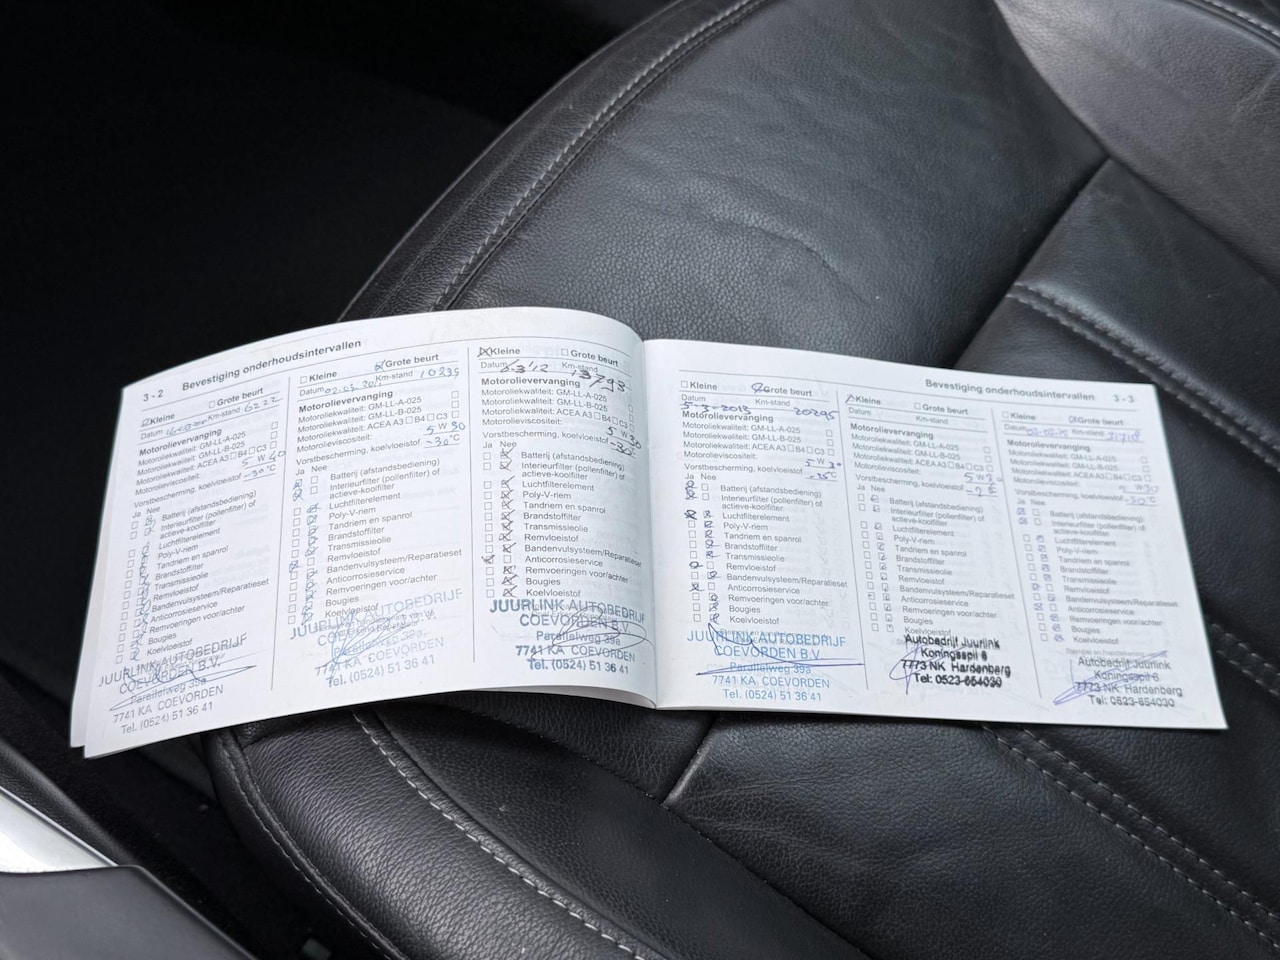 3 - 2 Bevestiging onderhoudsintervallen
Kleine Grote beurt
Datum Km-stand 6222
Motorolievervanging
Motoroliekwaliteit: GM-LL-A-025
Motoroliekwaliteit: GM-LL-B-025
Motoroliekwaliteit: ACEA A3 B4 C3
Motorolieviscositeit: 5 W
Vorstbescherming, koelvloeistof -30°C
Ja Nee
Batterij (afstandsbediening)
Interieurfilter (pollenfilter) of
actieve-koolfilter
Luchtfilterelement
Poly-V-riem
Tandriem en spanrol
Brandstoffilter
Transmissieolie
Remvloeistof
Bandenvulsysteem/Reparatieset
Anticorrosieservice
Remvoeringen voor/achter
Bougies
Koelvloeistof
JUURLINK AUTOBEDRIJF
COEVORDEN B.V.
Parallelweg 39a
7741 KA COEVORDEN
Tel. (0524) 51 36 41
Kleine Grote beurt
Datum Km-stand 10235
Motorolievervanging
Motoroliekwaliteit: GM-LL-A-025
Motoroliekwaliteit: GM-LL-B-025
Motoroliekwaliteit: ACEA A3 B4 C3
Motorolieviscositeit: 5 W 30
Vorstbescherming, koelvloeistof -30°C
Ja Nee
Batterij (afstandsbediening)
Interieurfilter (pollenfilter) of
actieve-koolfilter
Luchtfilterelement
Poly-V-riem
Tandriem en spanrol
Brandstoffilter
Transmissieolie
Remvloeistof
Bandenvulsysteem/Reparatieset
Anticorrosieservice
Remvoeringen voor/achter
Bougies
Koelvloeistof
JUURLINK AUTOBEDRIJF
COEVORDEN B.V.
Parallelweg 39a
7741 KA COEVORDEN
Tel. (0524) 51 36 41
Kleine Grote beurt
Datum Km-stand 13793
Motorolievervanging
Motoroliekwaliteit: GM-LL-A-025
Motoroliekwaliteit: GM-LL-B-025
Motoroliekwaliteit: ACEA A3 B4 C3
Motorolieviscositeit: 5 W 30
Vorstbescherming, koelvloeistof
Ja Nee
Batterij (afstandsbediening)
Interieurfilter (pollenfilter) of
actieve-koolfilter
Luchtfilterelement
Poly-V-riem
Tandriem en spanrol
Brandstoffilter
Transmissieolie
Remvloeistof
Bandenvulsysteem/Reparatieset
Anticorrosieservice
Remvoeringen voor/achter
Bougies
Koelvloeistof
JUURLINK AUTOBEDRIJF
COEVORDEN B.V.
Parallelweg 39a
7741 KA COEVORDEN
Tel. (0524) 51 36 41
Bevestiging onderhoudsintervallen 3 - 3
Kleine Grote beurt
Datum Km-stand
5-3-2013 20295
Motorolievervanging
Motoroliekwaliteit: GM-LL-A-025
Motoroliekwaliteit: GM-LL-B-025
Motoroliekwaliteit: ACEA A3 B4 C3
Motorolieviscositeit: 5 W 30
Vorstbescherming, koelvloeistof
Ja Nee
Batterij (afstandsbediening)
Interieurfilter (pollenfilter) of
actieve-koolfilter
Luchtfilterelement
Poly-V-riem
Tandriem en spanrol
Brandstoffilter
Transmissieolie
Remvloeistof
Bandenvulsysteem/Reparatieset
Anticorrosieservice
Remvoeringen voor/achter
Bougies
Koelvloeistof
JUURLINK AUTOBEDRIJF
COEVORDEN B.V.
Parallelweg 39a
7741 KA COEVORDEN
Tel. (0524) 51 36 41
Kleine Grote beurt
Datum Km-stand
Motorolievervanging
Motoroliekwaliteit: GM-LL-A-025
Motoroliekwaliteit: GM-LL-B-025
Motoroliekwaliteit: ACEA A3 B4 C3
Motorolieviscositeit: 5 W 30
Vorstbescherming, koelvloeistof
Ja Nee
Batterij (afstandsbediening)
Interieurfilter (pollenfilter) of
actieve-koolfilter
Luchtfilterelement
Poly-V-riem
Tandriem en spanrol
Brandstoffilter
Transmissieolie
Remvloeistof
Bandenvulsysteem/Reparatieset
Anticorrosieservice
Remvoeringen voor/achter
Bougies
Koelvloeistof
Autobedrijf Juurlink
Koningsspil 6
7773 NK Hardenberg
Tel: 0523-654030
Kleine Grote beurt
Datum Km-stand
Motorolievervanging
Motoroliekwaliteit: GM-LL-A-025
Motoroliekwaliteit: GM-LL-B-025
Motoroliekwaliteit: ACEA A3 B4 C3
Motorolieviscositeit: W 30
Vorstbescherming, koelvloeistof -30°C
Ja Nee
Batterij (afstandsbediening)
Interieurfilter (pollenfilter) of
actieve-koolfilter
Luchtfilterelement
Poly-V-riem
Tandriem en spanrol
Brandstoffilter
Transmissieolie
Remvloeistof
Bandenvulsysteem/Reparatieset
Anticorrosieservice
Remvoeringen voor/achter
Bougies
Koelvloeistof
Autobedrijf Juurlink
Koningsspil 6
7773 NK Hardenberg
Tel: 0523-654030